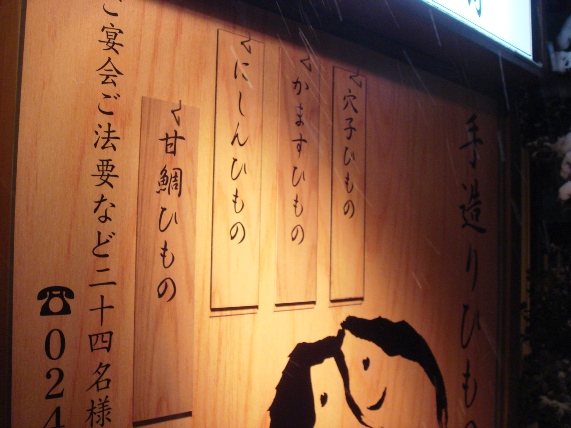 手造りひもの
穴子ひもの
かますひもの
にしんひもの
甘鯛ひもの
ご宴会ご法要など二十四名様
☎024